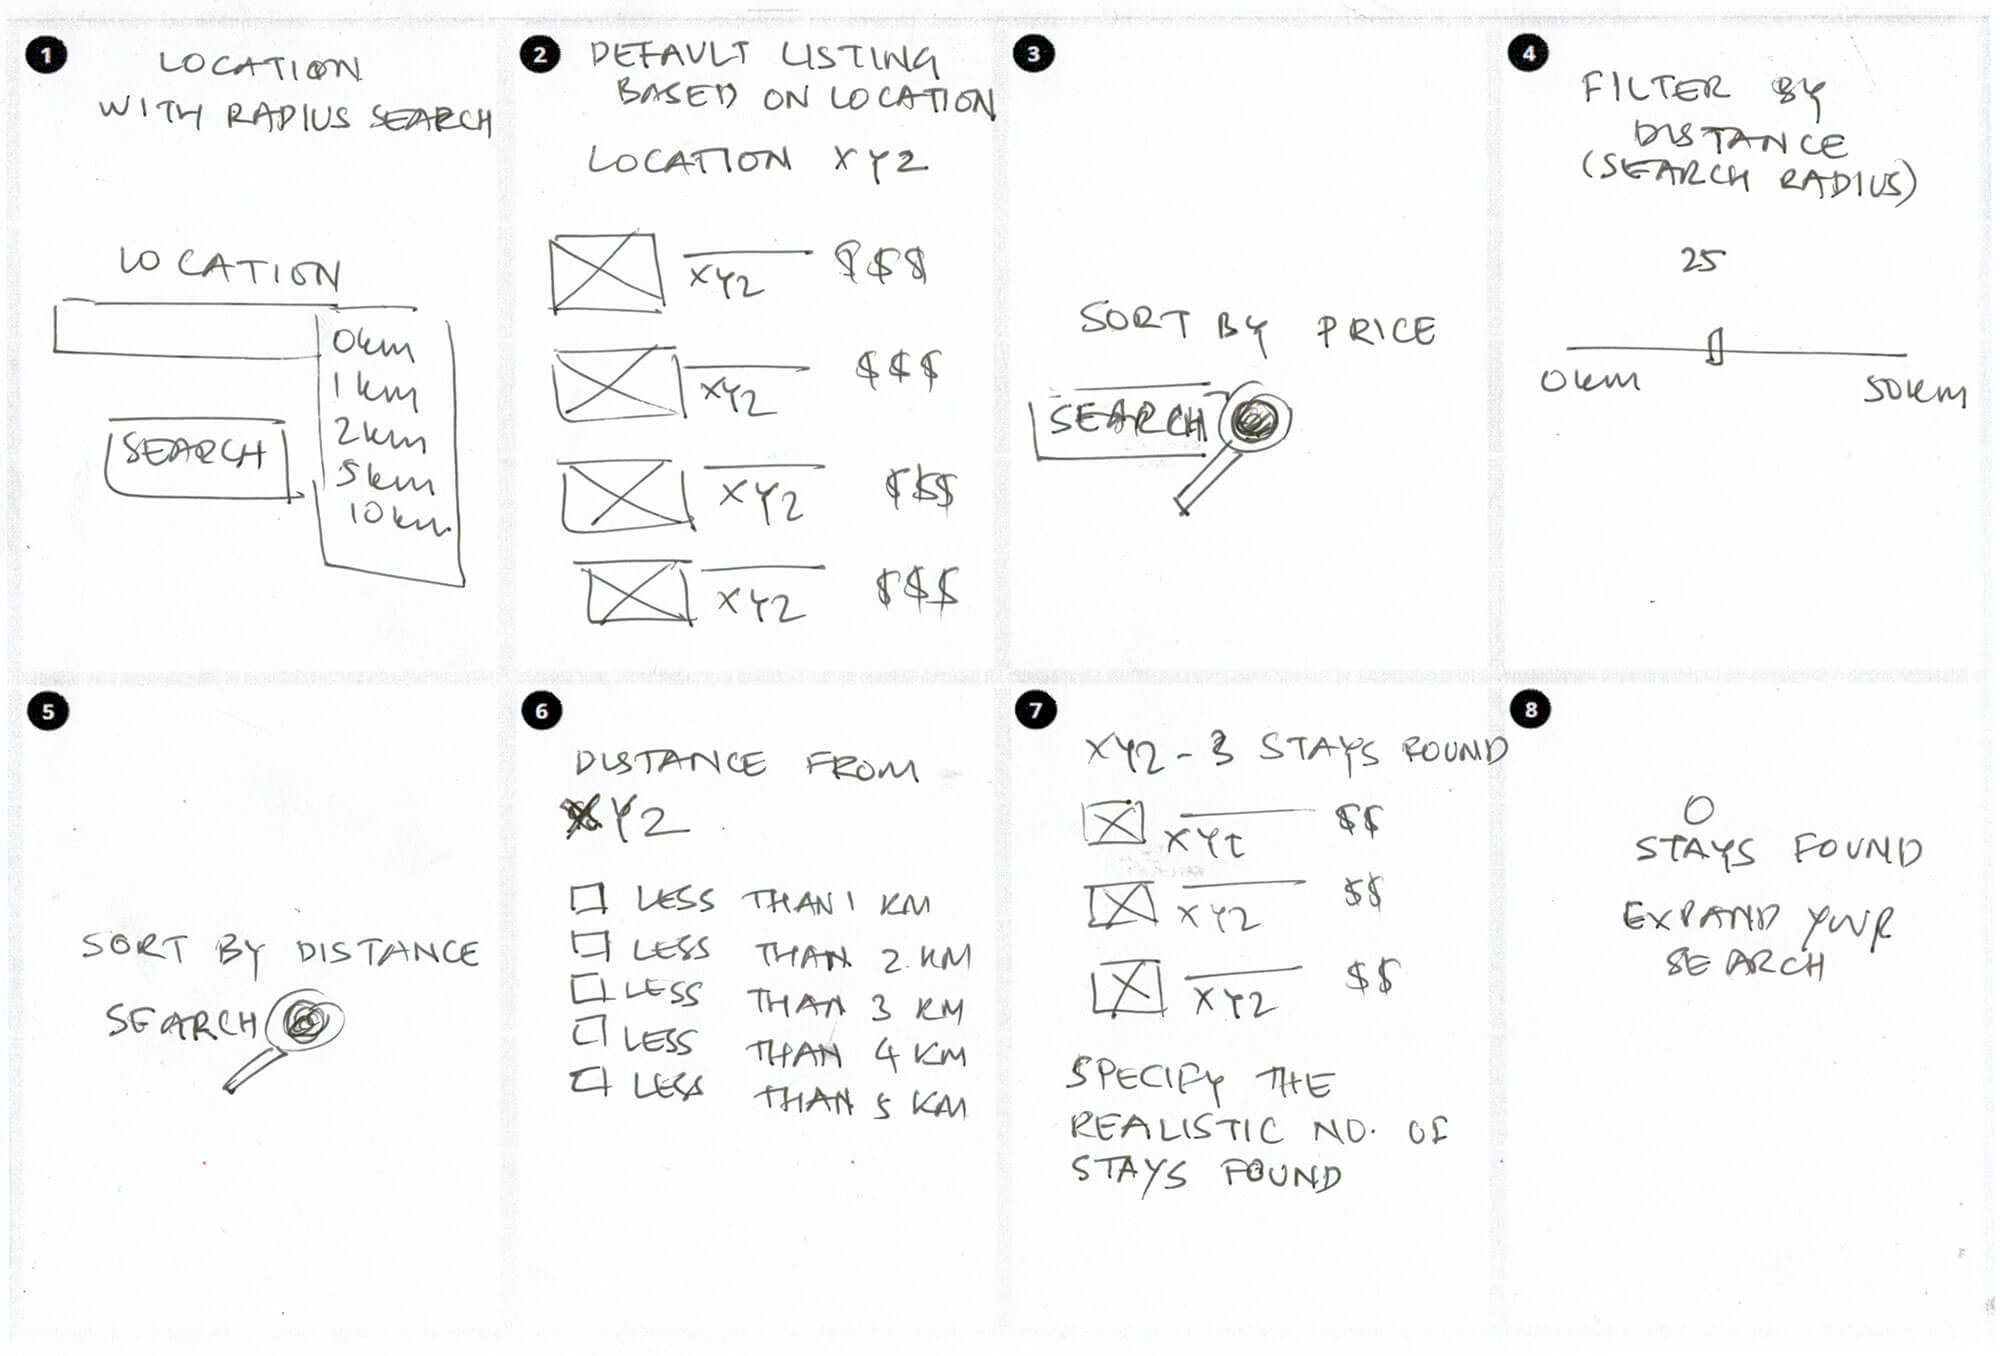 1
LOCATION
WITH RADIUS SEARCH
LOCATION
0km
1km
2km
5km
10km
SEARCH
2
DEFAULT LISTING
BASED ON LOCATION
LOCATION XYZ
XYZ $$$
XYZ $$$
XYZ $$$
XYZ $$$
3
SORT BY PRICE
SEARCH
4
FILTER BY
DISTANCE
(SEARCH RADIUS)
25
0km
50km
5
SORT BY DISTANCE
SEARCH
6
DISTANCE FROM
XYZ
LESS THAN 1 KM
LESS THAN 2 KM
LESS THAN 3 KM
LESS THAN 4 KM
LESS THAN 5 KM
7
XYZ - 3 STAYS FOUND
XYZ $$
XYZ $$
XYZ $$
SPECIFY THE
REALISTIC NO. OF
STAYS FOUND
8
0
STAYS FOUND
EXPAND YOUR
SEARCH